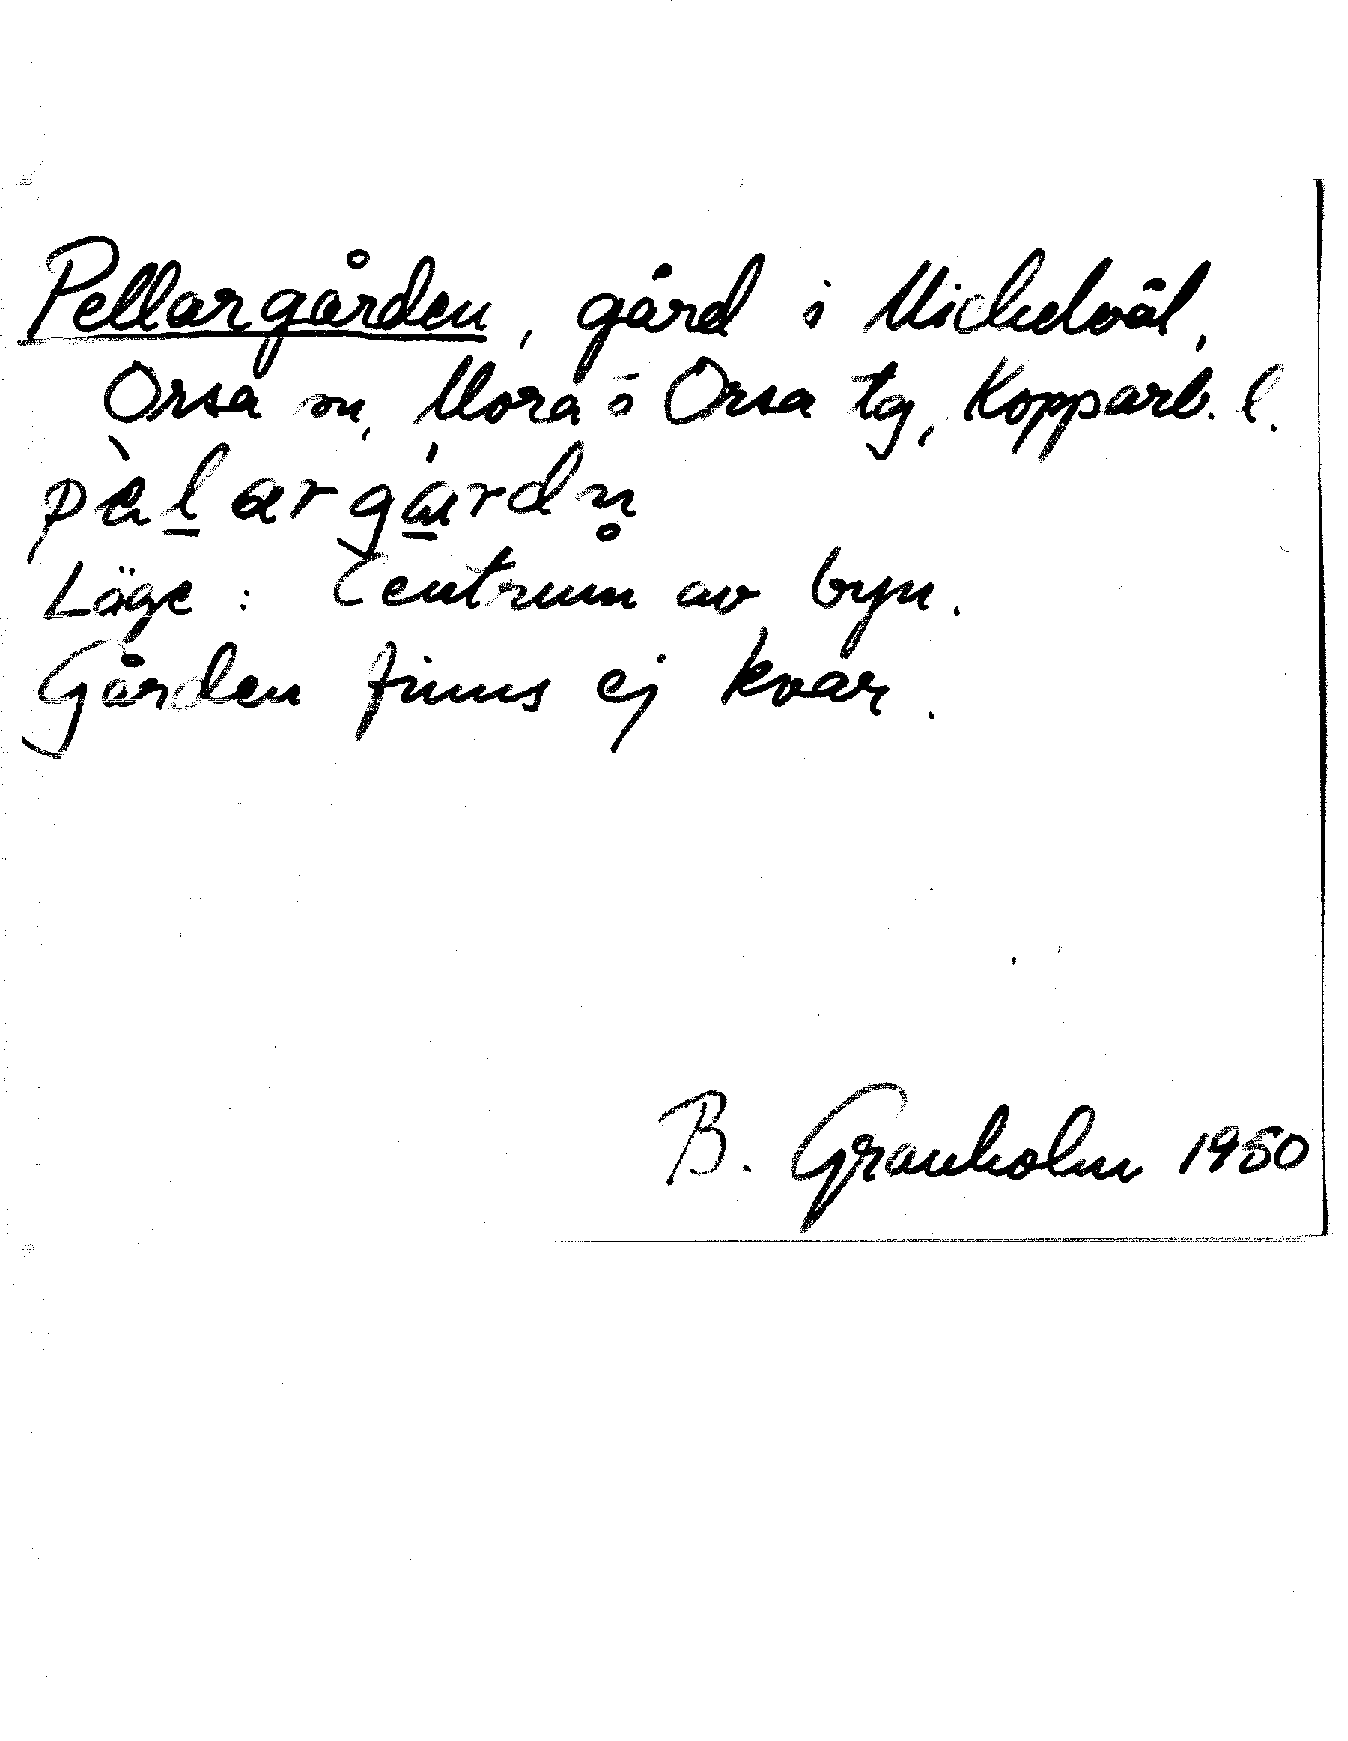 Pellargården, gård i Mickelvål,
Orsa sn, Mora o Orsa tg, Kopparb. l.
pὰl̲arga̲̍rdn̥
Läge: Centrum av byn.
Gården finns ej kvar.
B. Granholm 1950